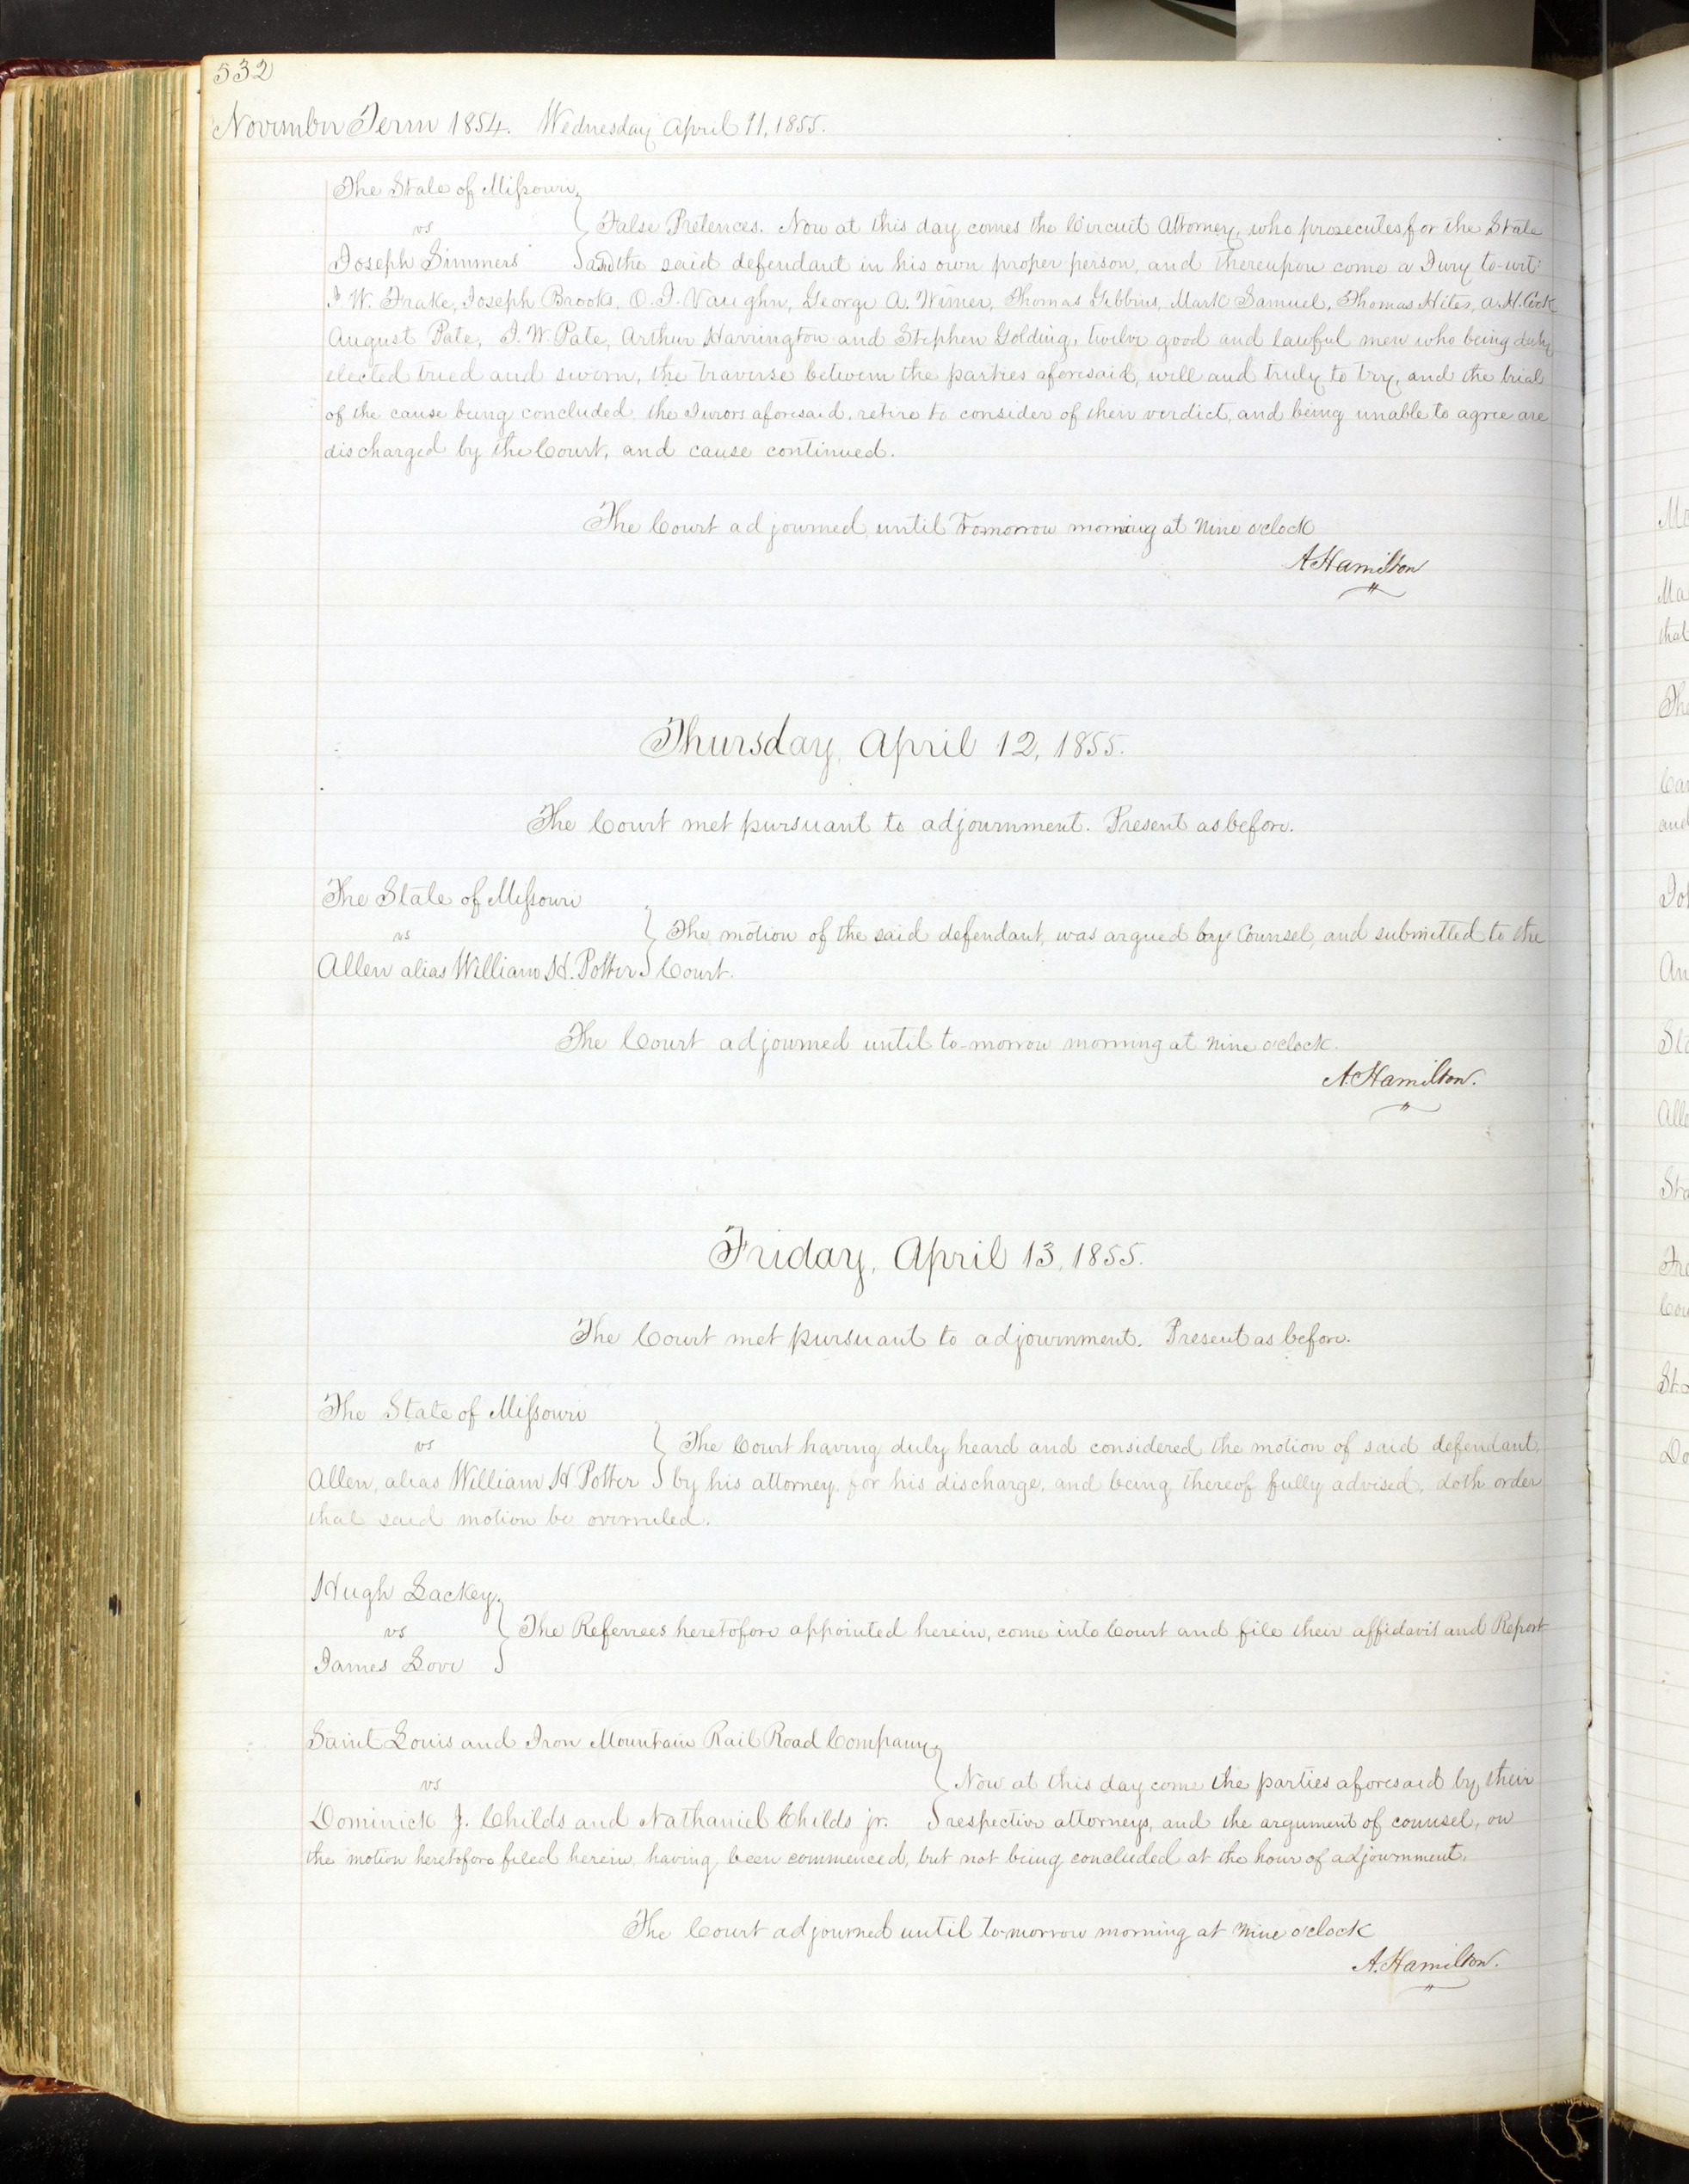 532
November Term 1854. Wednesday April 11, 1855.
The State of Missouri
vs
False Pretences. Now at this day comes the Circuit Attorney, who prosecutes for the State
Joseph Simmers and the said defendant in his own proper person, and thereupon come a Jury to-wit:
J W. Frake, Joseph Brooks, O. J. Vaughn, George A. Wimer, Thomas Gibbins, Mark Samuel, Thomas Hites, A. H.
August Pate, J. W. Pate, Arthur Harrington and Stephen Golding, twelve good and lawful men who being duly
elected tried and sworn, the traverse between the parties aforesaid, well and truly to try, and the trial
of the cause being concluded the Jurors aforesaid. retire to consider of their verdict, and being unable to agree are
discharged by the Court, and cause continued.
The Court adjourned until Tomorrow morning at Nine o'clock
A Hamilton
Thursday, April 12, 1855.
The Court met pursuant to adjournment. Present as before.
The State of Missouri
vs
The motion of the said defendant, was argued by Counsel, and submitted to the
Allen alias William H. Potter Court.
The Court adjourned until to-morrow morning at nine o'clock.
A. Hamilton.
Friday, April 13, 1855.
The Court met pursuant to adjournment. Present as before.
The State of Missouri
vs
The Court having duly heard and considered the motion of said defendant,
Allen, alias William H Potter by his attorney, for his discharge, and being thereof fully advised, doth order
that said motion be overruled.
Hugh Lackey
vs
The Referrees heretofore appointed herein, come into Court and file their affidavit and Report
James Love
Saint Louis and Iron Mountain Rail Road Company
vs
Now at this day come the parties aforesaid by their
Dominick J. Childs and Nathaniel Childs jr. respective attorneys, and the argument of counsel, on
the motion heretofore filed herein, having been commenced, but not being concluded at the hour of adjournment.
The Court adjourned until to-morrow morning at nine o'clock
A. Hamilton.